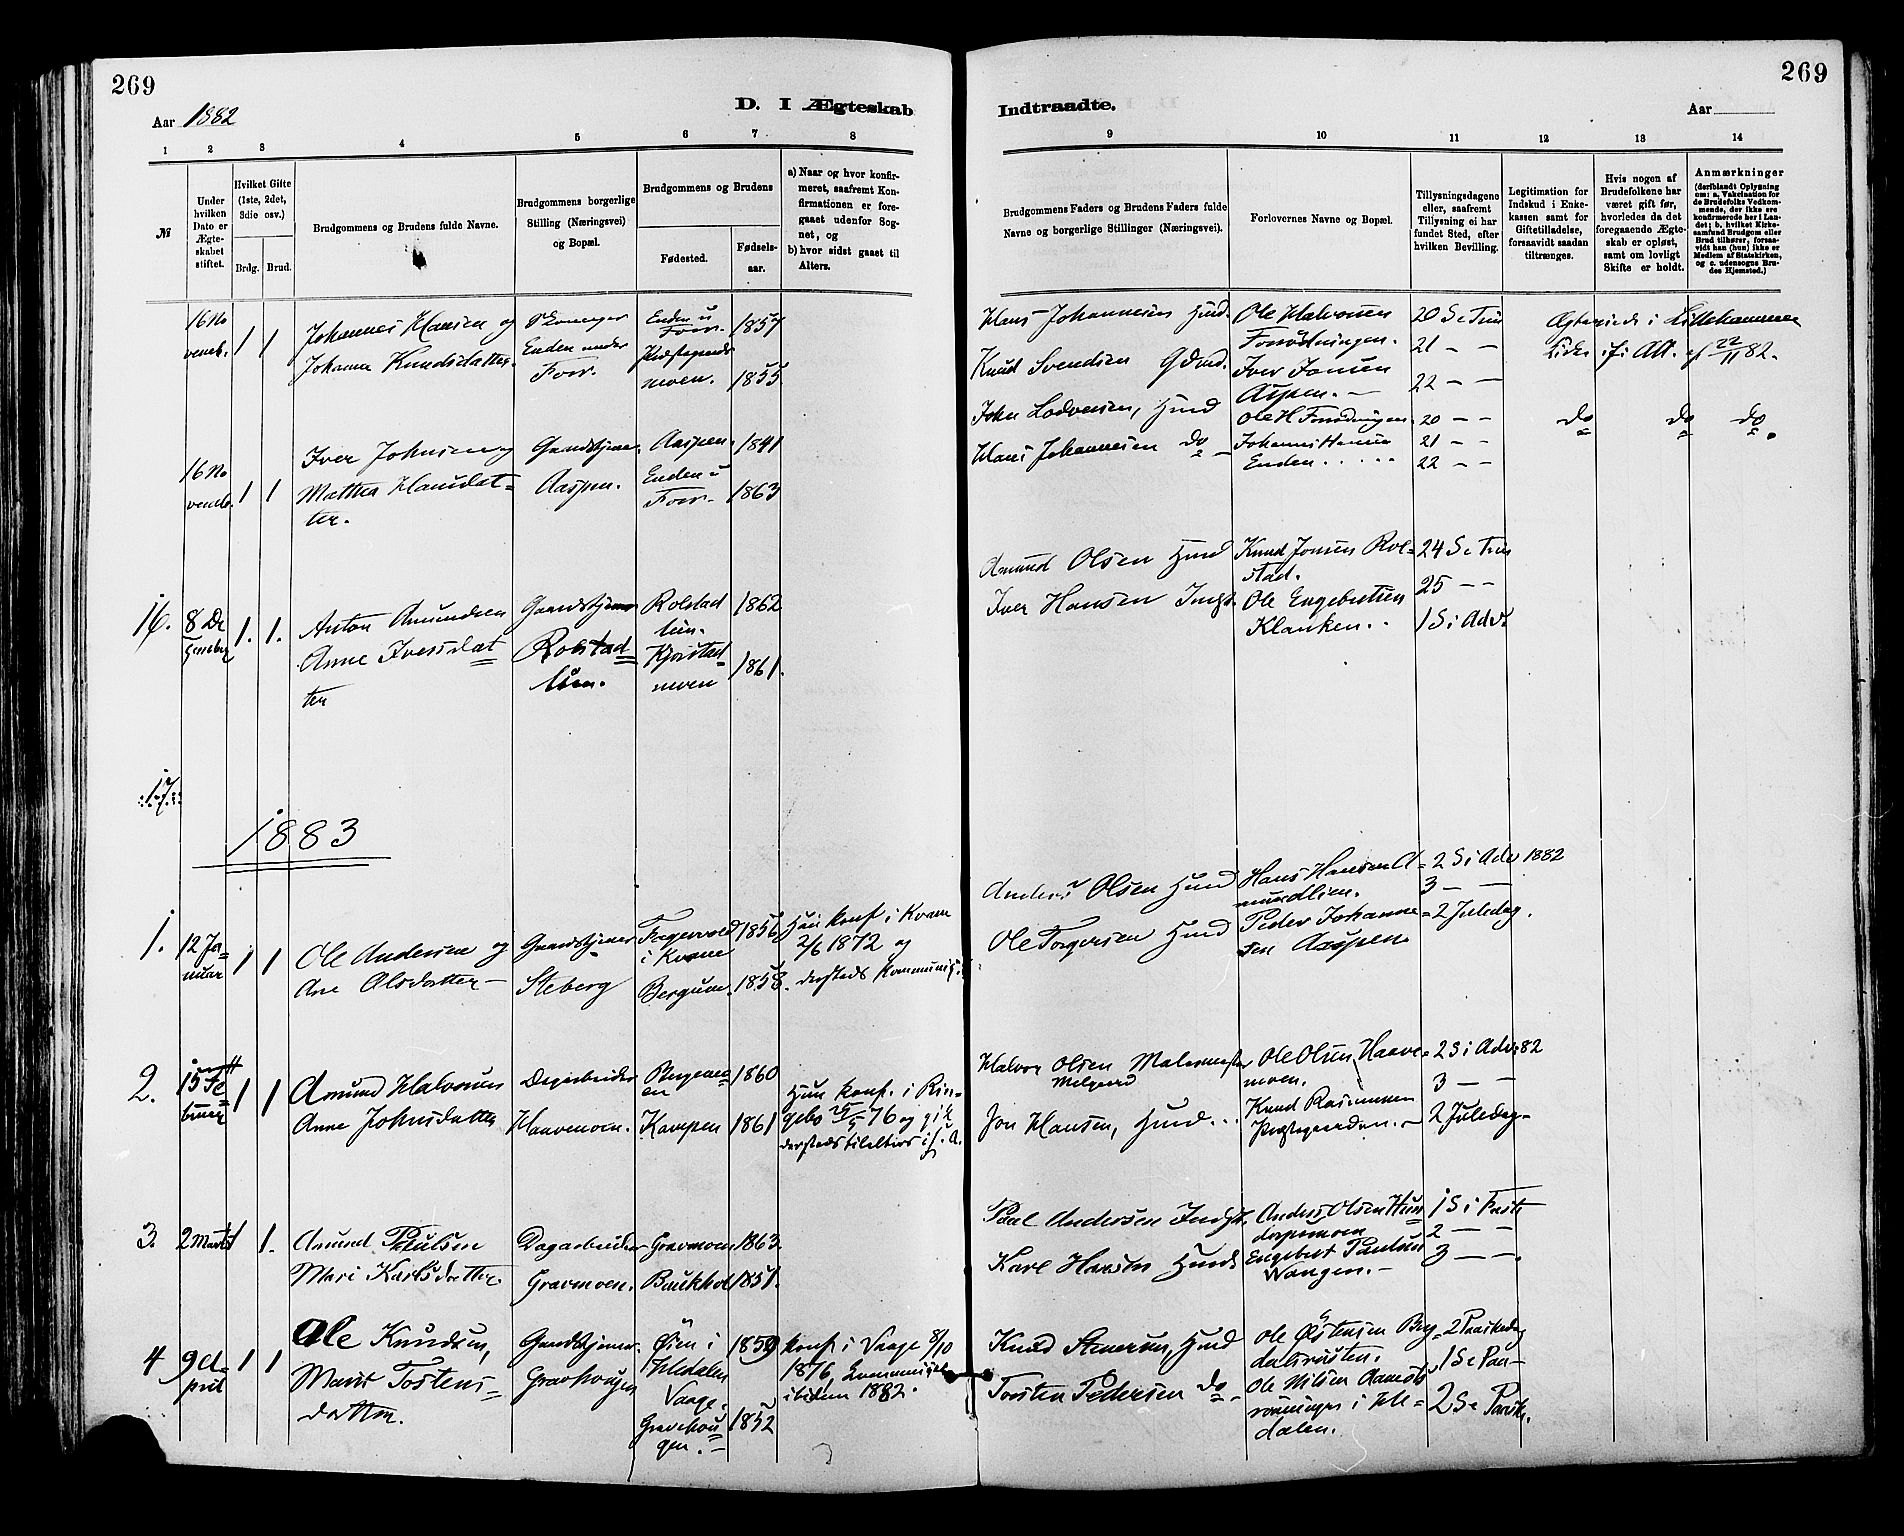 269
269
Aar 1882
D. I Ægteskab
Indtraadte.
Aar
1
2
3
4
5
6
7
8
9
10
11
12
13
14
№
Under
hvilken
Dato er
Ægte-
skabet
stiftet.
Hvilket Gifte
(1ste, 2det,
3die osv.)
Brdg.
Brud.
Brudgommens og Brudens fulde Navne.
Brudgommens borgerlige
Stilling (Næringsvei)
og Bopæl.
Brudgommens og Brudens
Fødested.
Fødsels-
aar.
a) Naar og hvor konfir-
meret, saafremt Kon-
firmationen er fore-
gaaet udenfor Sog-
net, og
b) hvor sidst gaaet til
Alters.
Brudgommens Faders og Brudens Faders fulde
Navne og borgerlige Stillinger (Næringsvei).
Forlovernes Navne og Bopæl.
Tillysningsdagene
eller, saafremt
Tillysning ei har
fundet Sted, efter
hvilken Bevilling.
Legitimation for
Indskud i Enke-
kassen samt for
Giftetilladelse,
forsaavidt saadan
tiltrænges.
Hvis nogen af
Brudefolkene har
været gift før,
hvorledes da det
foregaaende Ægte-
skab er opløst,
samt om lovligt
Skifte er holdt.
Anmærkninger
(deriblandt Oplysning
om: a. Vakcination for
de Brudefolks Vedkom-
mende, der ikke ere
konfirmerede her i Lan-
det; b. hvilket Kirke-
samfund Brudgom eller
Brud tilhører, forsaa-
vidt han (hun) ikke er
Medlem af Statskirken,
og c. udensogns Bru-
des Hjemsted.)
16 No
vemb.
1
1
Johannes Hansen og
Johanne Knudsdatter.
Enden under
Foer.
Enden u
Foer.
moen.
1857
1855
Hans Johannesen Husd.
Knud Svendsen Gdsd.
Ole Halvorsen
Iver Jonsen
Aspen.
20 S e Trin
21 - -
22 - -
i Lillehammer
22/11 82.
16 No
vemb.
1
1
Iver Johnsen og
Mathea Hansdat=
ter.
Gaardstjener
Aaspen.
Aaspen.
Enden u
Foer.
1841
1863
John Lodvensen, Husd
Hans Johannesen do
Johannes Hansen
Enden . . . . .
20 - -
21 - -
22 - -
do
do
do.
16.
8 De
1.
1.
Anton Amundsen
Anne Iversdat=
ter
Gaardstjener
Rolstad=
lien.
Rolstad
lien.
Kjørstad=
moen
1862
1861.
Amund Olsen Husd
Iver Hansen Indst.
Knud Jonsen Rol=
stad.
Ole Engebretsen
Klanken. .
24 S e Trin
25 - -
1 S i Adv.
17.
1883
1.
12 Ja=
nuar
1
1
Ole Andersen og
Ane Olsdatter
Gaardstjener
Steberg
Fagervold
i Kvam
Bergum.
1856
1858.
Hun konf. i Kvam
2/6 1872 og
dersteds
Anders Olsen Husd
Ole Torgersen Husd
Hans Hansen A=
mundlien.
Peder Johanne=
sen Aaspen.
2 S i Adv 1882
3 - -
2 Juledag.
2.
15 Fe=
bruar
1
1
Amund Halvorsen
Anne Johnsdatter
Dagarbeider
Haavemoen.
Kampen
1860
1861
Hun konf. i Rin=
gebo 76 og gik
dersteds til alters
Halvor Olsen Malermester
Jon Hansen, Husd. . .
Ole Olsen Haave=
moen.
Knud Rasmussen
Præstegaarden.
2 S i Adv. 82
3 - -
2 Juledag
3.
2 Marts
1
1.
Amund Paulsen
Mari Karlsdatter.
Dagarbeider
Gravmoen.
Gravmoen
1863
1851.
Paul Andersen Indst.
Karl Hansen Husd
Anders Olsen Hun
dorpsmoen
Engebret Paulsen
Vangen.
1 S i Faste
2 - -
3 - -.
4
9 A=
pril
1
1
Ole Knudsen,
Marit Tostens=
datter.
Gaardstjener
Gravhougen
Øien i
Hedalen
Vaage.
Gravehou=
gen.
1859
1852
konf. i Vaage 8/10
1876,
ibidem 1882.
Knud Stenersen, Husd
Torsten Pedersen do
Ole Østensen
Ole Nilsen
i He=
dalen.
2 Paaskedag
1 S e Paa=
2 S e Paask.